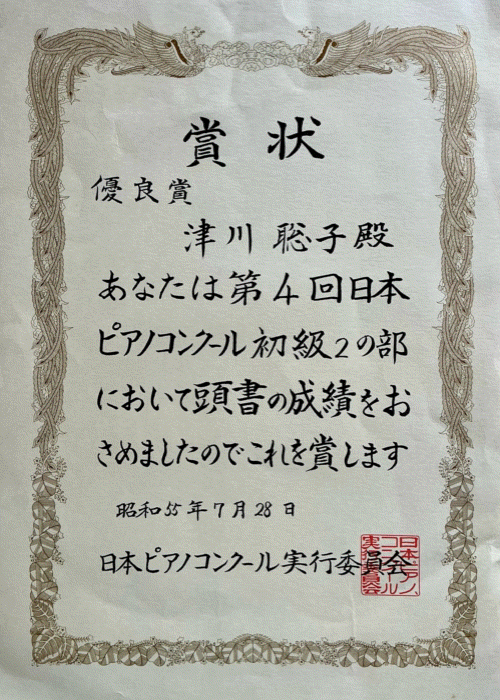 賞状
優良賞
津川聡子殿
あなたは第4回日本
ピアノコンクール初級2の部
において頭書の成績をお
さめましたのでこれを賞します
昭和55年7月28日
日本ピアノコンクール実行委員会
日本ピアノ
コンクール
実行委員会